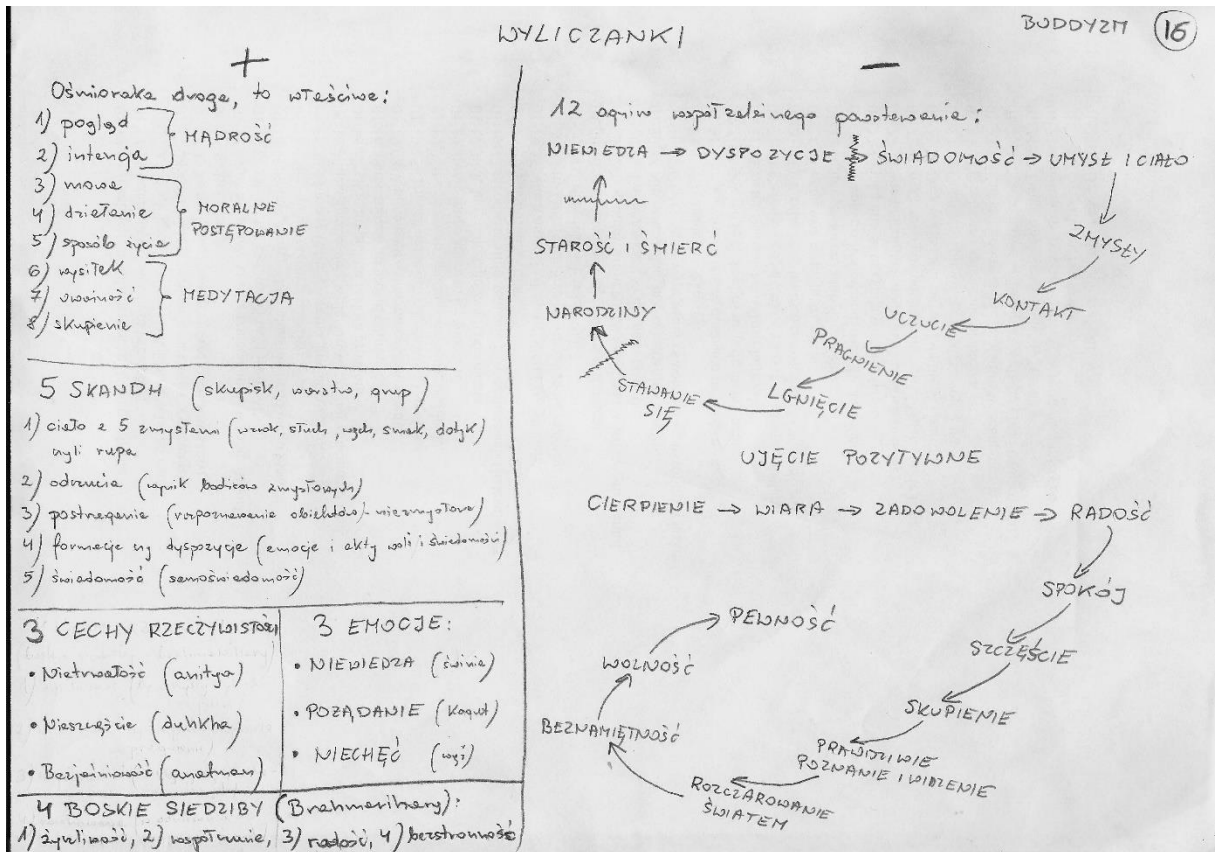 WYLICZANKI
BUDDYZM 16
+
Ośmioraka droga, to właściwe:
1) pogląd
2) intencja
MĄDROŚĆ
3) mowa
4) działanie
5) sposób życia
MORALNE
POSTĘPOWANIE
6) wysiłek
7) uważność
8) skupienie
MEDYTACJA
5 SKANDH (skupisk, warstw, grup)
1) ciało z 5 zmysłami (wzrok, słuch, węch, smak, dotyk)
czyli rupa
2) odczucia (wynik bodźców zmysłowych)
3) postrzeganie (rozpoznawanie obiektów) - niezmysłowe
4) formacje czy dyspozycje (emocje i akty woli i świadomości)
5) świadomość (samoświadomość)
3 CECHY RZECZYWISTOŚCI
• Nietrwałość (anitya)
• Nieszczęście (duhkha)
• Bezjaźniowość (anatman)
3 EMOCJE:
• NIEWIEDZA (świnia)
• POŻĄDANIE (kogut)
• NIECHĘĆ (wąż)
4 BOSKIE SIEDZIBY (Brahmavihary):
1) życzliwość, 2) współczucie, 3) radość, 4) bezstronność
−
12 ogniw współzależnego powstawania:
NIEWIEDZA → DYSPOZYCJE → ŚWIADOMOŚĆ → UMYSŁ I CIAŁO
ZMYSŁY
KONTAKT
UCZUCIE
PRAGNIENIE
LGNIĘCIE
STAWANIE
SIĘ
NARODZINY
STAROŚĆ I ŚMIERĆ
UJĘCIE POZYTYWNE
CIERPIENIE → WIARA → ZADOWOLENIE → RADOŚĆ
SPOKÓJ
SZCZĘŚCIE
SKUPIENIE
PRAWDZIWE
POZNANIE I WIDZENIE
ROZCZAROWANIE
ŚWIATEM
BEZNAMIĘTNOŚĆ
WOLNOŚĆ
PEWNOŚĆ